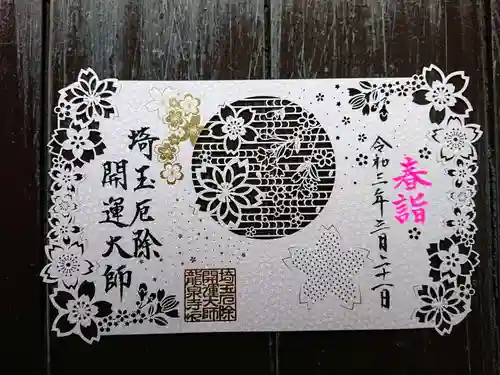 春詣
令和三年三月二十一日
埼玉厄除
開運大師
埼玉厄除
開運大師
龍泉寺